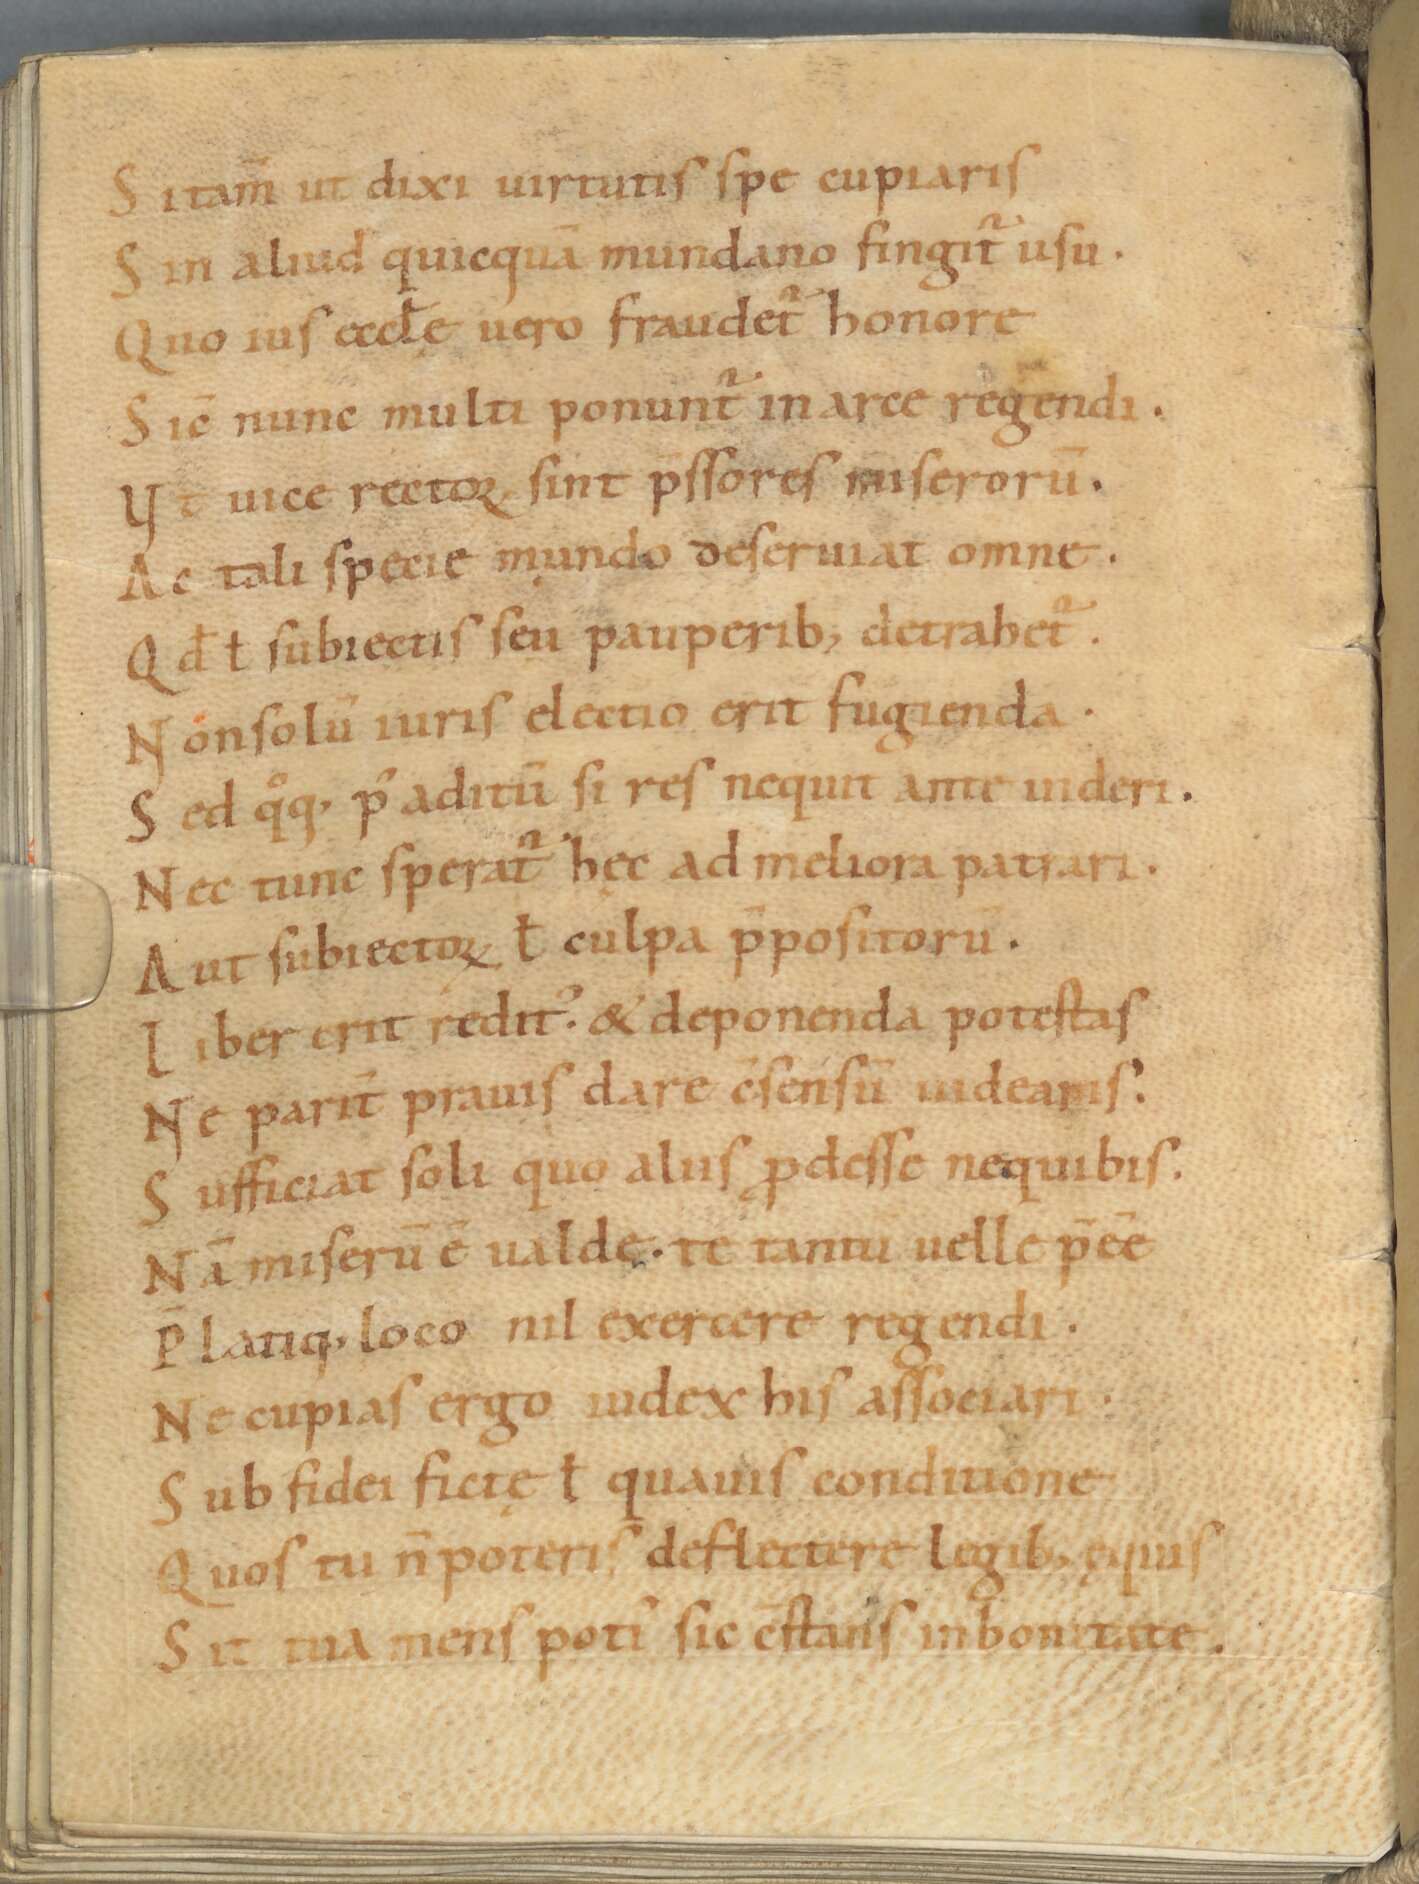 S itam̄ ut dixi uirtutis spe cupiaris
S in aliud quicquā mundano fingit᷑ usu .
Q uo ius eccl̄ę uero fraudet᷑ honore
S ic̄ nunc multi ponunt᷑ in arce regendi .
V t uice rectoꝝ sint p̄ssores miserorū .
A c tali specie mundo deseruiat omne .
Q d̄ ł subiectis seu pauperib; detrahet᷑ .
N onsolū iuris electio erit fugienda .
S ed qͦq, p᷑ aditū si res nequit ante uideri .
N ec tunc sperat᷑ hęc ad meliora patrari .
A ut subiectoꝝ ł culpa p̄positorū .
L iber erit redit᷒ . & deponenda potestas
N e parit̄ prauis dare c̄sensū uidearis .
S ufficiat soli quo aliis ꝓdesse nequibis .
N ā miserū ē ualde . te tantū uelle p̄ēe
P̄ latiq, loco nil exercere regendi .
N e cupias ergo iudex his associari .
S ub fidei fictę ł quauis conditione
Q uos tu n̄ poteris deflectere legib; ęquis
S it tua mens poti᷒ sic c̄stans in bonitate .